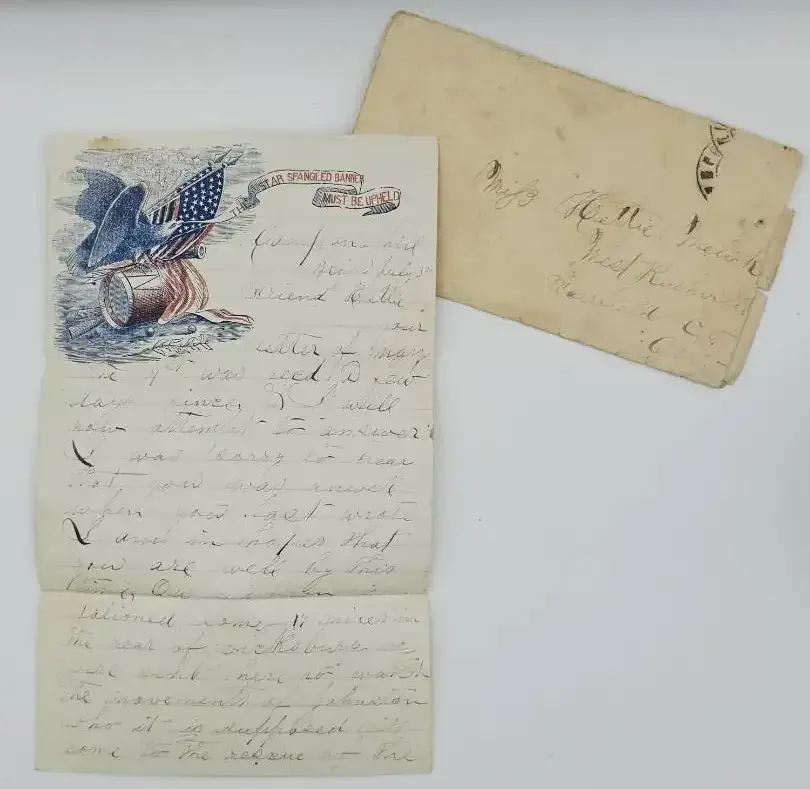 THE STAR SPANGLED BANNER
MUST BE UPHELD
Camp one mile
July 3rd
Friend Hettie
your
letter of May
the was recd A few
days since, & I will
now attempt to answer
I was sorry to hear
that you was unwell
when you last wrote
I am in hopes that
you are well by this
time, Our is
stationed some 11 miles in
the rear of vicksburg we
were sent here to watch
the movements of Johnston
who it is supposed will
come to the rescue of the
Miss Hettie
West